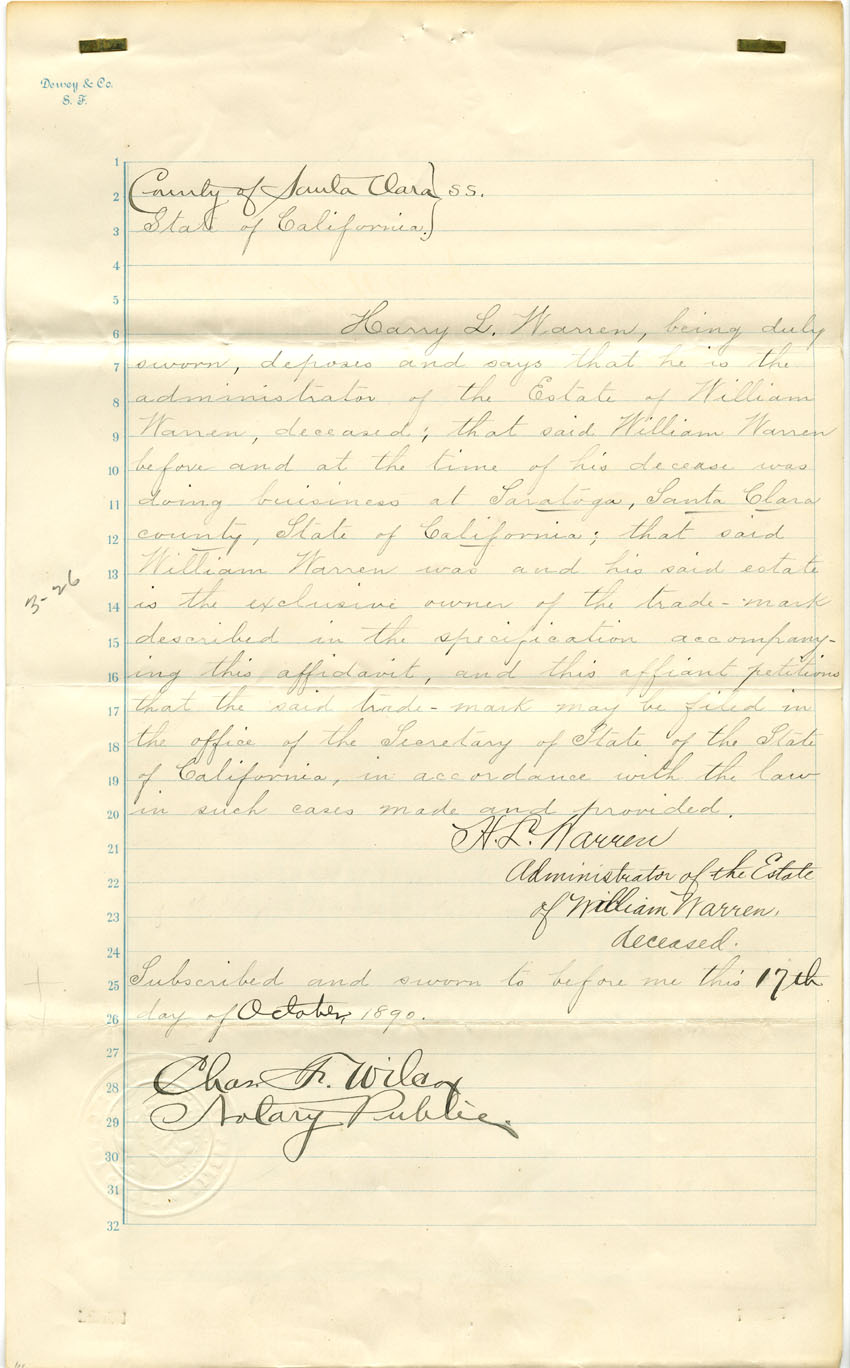 Dewey & Co.
S. F.
1
2 County of Santa Clara } ss.
3 State of California. }
4
5
6 Harry L. Warren, being duly
7 sworn, deposes and says that he is the
8 administrator of the Estate of William
9 Warren, deceased; that said William Warren
10 before and at the time of his decease was
11 doing buisiness at Saratoga, Santa Clara
12 county, State of California; that said
13 William Warren was and his said estate
14 is the exclusive owner of the trade-mark
15 described in the specification accompany-
16 ing this affidavit, and this affiant petitions
17 that the said trade-mark may be filed in
18 the office of the Secretary of State of the State
19 of California, in accordance with the law
20 in such cases made and provided.
21 H. L. Warren
22 Administrator of the Estate
23 of William Warren,
24 deceased.
25 Subscribed and sworn to before me this 17th
26 day of October, 1890.
27
28 Chas. F. Wilcox
29 Notary Public.
30
31
32
3-26